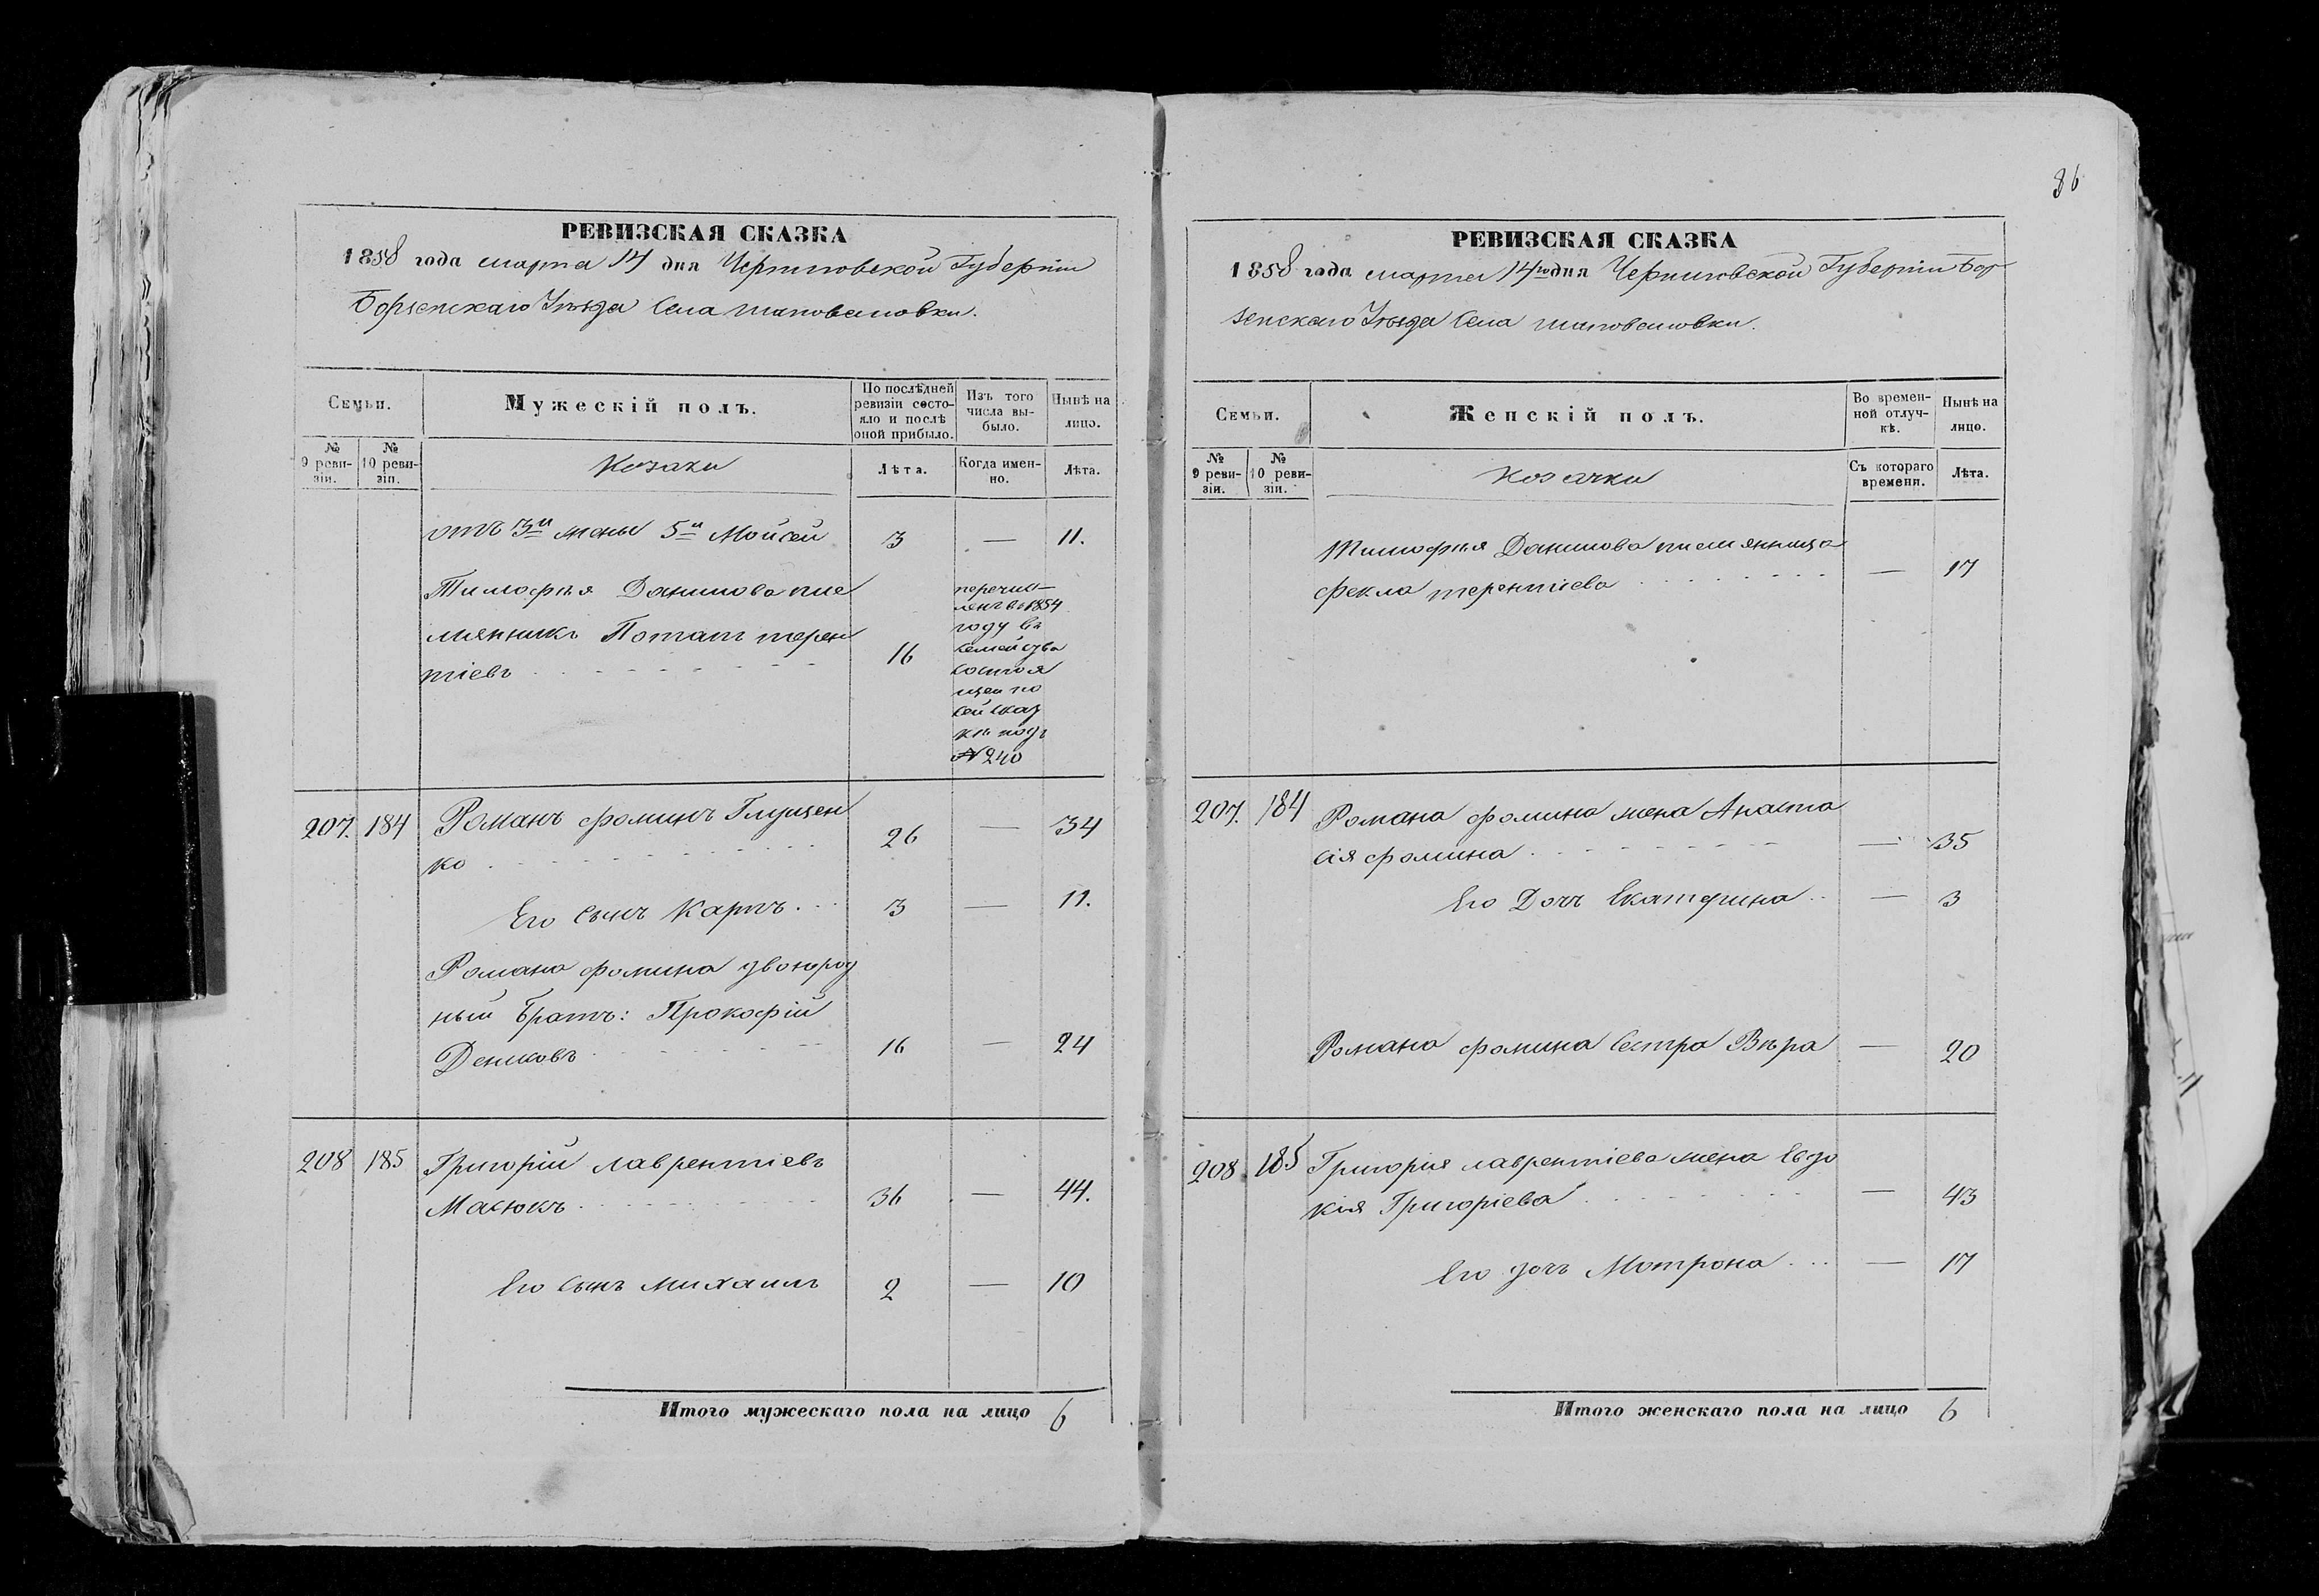 86
РЕВИЗСКАЯ СКАЗКА
1858 года марта 14 дня Черниговской Губерніи
Борзенскаго Уѣзда Села Шаповаловки.
Семьи.
Мужескій полъ.
По послѣдней ревизіи состояло и послѣ оной прибыло.
Изъ того числа выбыло.
Нынѣ на лицо.
№ 9 ревизіи.
№ 10 ревизіи.
Козаки
Лѣта.
Когда именно.
Лѣта.
отъ 3й жены 5й Мойсей 3 — 11.
Тимофѣя Данилова пле
мянникъ Потапъ терен
тіевъ 16
перечис-
ленъ въ 1854
году въ
семейства
состоя
щеи по
сей сказ
кѣ подъ
№ 240
207. 184 Романъ фоминъ Глущен
ко 26 — 34
Его сынъ Карпъ 3 — 11.
Романа фомина двоюрод
ный братъ: Прокофій
Денисовъ 16 — 24
208 185 Григорій лаврентіевъ
Масюкъ 36 — 44.
Его сынъ михаилъ 2 — 10
Итого мужескаго пола на лицо 6
РЕВИЗСКАЯ СКАЗКА
1858 года марта 14го дня Черниговской Губерніи Бор
зенскаго Уѣзда Села Шаповаловки.
Семьи.
Женскій полъ.
Во временной отлучкѣ.
Нынѣ на лицо.
№ 9 ревизіи.
№ 10 ревизіи.
Козачки
Съ котораго времени.
Лѣта.
Тимофѣя Данилова племянница
фекла терентіева — 17
207. 184 Романа фомина жена Анаста
сія фомина — 35
Его Дочь Екатерина — 3
Романа фомина Сестра Вѣра — 20
208 185 Григорія лаврентіева жена Евдо
кія Григоріева — 43
Его дочь Мотрона — 17
Итого женскаго пола на лицо 6